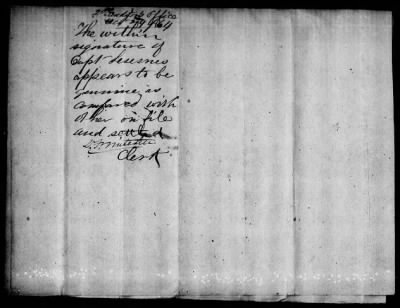 2nd Auditor's Office
The within
signature of
Capt
appears to be
genuine as
compared with
other on file
and
Clerk